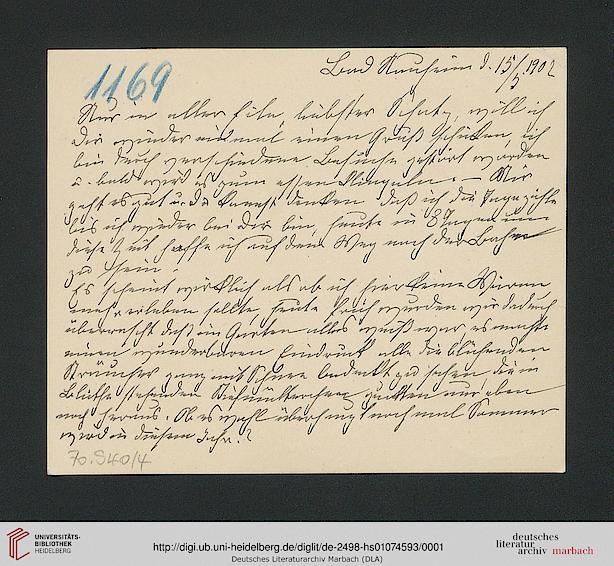 1169
Bad Nauheim d. 15/5 1902
Nur in aller Eile, liebster Schatz, will ich
Dir wieder einmal einen Gruß schicken, ich
bin durch verschiedene Besuche gestört worden
u. bald wird es zum essen klingeln. – Mir
geht es gut u. Du kannst denken daß ich die Tage zähle
bis ich wieder bei Dir bin, heute in 8 Tagen um
diese Zeit hoffe ich auf dem Weg nach der Bahn
zu sein.
Es scheint wirklich als ob ich hier keine Wärme
mehr erleben sollte, heute früh wurden wir dadurch
überrascht daß im Garten alles weiß war es machte
einen wunderbaren Eindruck alle die blühenden
Sträucher ganz mit Schnee bedeckt zu sehen, die in
Blüthe stehenden guckten nur eben
noch heraus. Ob es wohl überhaupt noch mal Sommer
wird in diesem Jahr?
70.940/4
UNIVERSITÄTS-
BIBLIOTHEK
HEIDELBERG
http://digi.ub.uni-heidelberg.de/diglit/de-2498-hs01074593/0001
Deutsches Literaturarchiv Marbach (DLA)
deutsches
literatur
archiv marbach